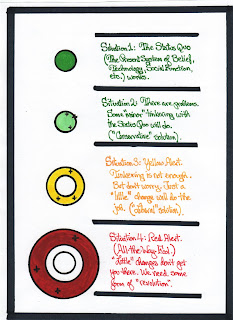 Situation 1: The Status Quo
(The Present System of Belief,
Technology, Social Function,
etc.) works.
Situation 2: There are problems.
Some "minor" tinkering with
the Status Quo will do.
("Conservative" solution).
Situation 3: Yellow Alert.
Tinkering is not enough.
But don't worry. Just a
"little" change will do the
job. ("Liberal" solution).
Situation 4: Red Alert.
(All-the-Way Riot.)
"Little" changes don't get
you there. We need some
form of "revolution".